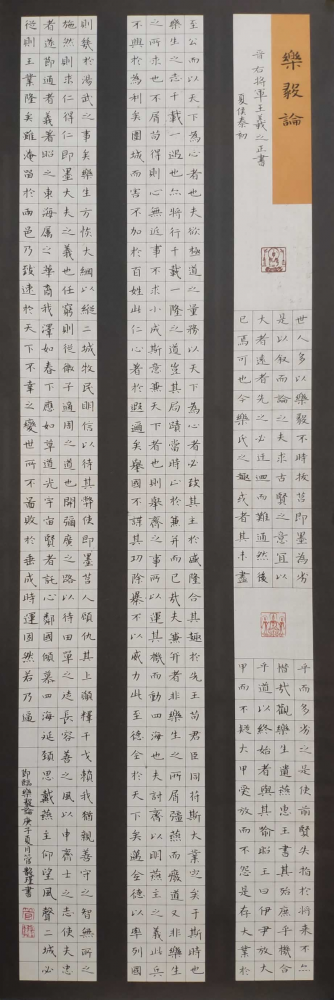 樂毅論
晉右將軍王羲之正書
夏侯泰初
世人多以樂毅不時拔莒即墨為劣
是以叙而論之夫求古賢之意宜以
大者遠者先之必迂迴而難通然後
已焉可也今樂氏之趣或者其未盡
乎而多劣之是使前賢失指於將來不亦
惜哉觀樂生遺燕惠王書其殆庶乎機合
乎道以終始者與其喻昭王曰伊尹放大
甲而不疑大甲受放而不怨是存大業於
至公而以天下為心者也夫欲極道之量務以天下為心者必致其主於盛隆合其趣於先王苟君臣同符斯大業定矣于斯時也
樂生之志千載一遇也亦將行千載一隆之道豈其局蹟當時止於兼并而已哉夫兼并者非樂生之所屑彊燕而廢道又非樂生
之所求也不屑苟得則心無近事不求小成斯意兼天下者也則舉齊之事所以運其機而動四海也夫討齊以明燕主之義此兵
不興於為利矣圍城而害不加於百姓此仁心著於遐迩矣舉國不謀其功除暴不以威力此至德全於天下矣邁全德以率列國
則幾於湯武之事矣樂生方恢大綱以縱二城牧民明信以待其弊使即墨莒人顧仇其上願釋干戈賴我猶親善守之智無所之
施然則求仁得仁即墨大夫之義也任窮則從微子適周之道也開彌廣之路以待田單之徒長容善之風以申齊士之志使夫忠
者遂節通者義著昭之東海屬之華裔我澤如春下應如草道光宇宙賢者託心鄰國傾慕四海延頸思戴燕主仰望風聲二城必
從則王業隆矣雖淹留於兩邑乃致速於天下不幸之變世所不啚敗於垂成時運固然若乃逼
節臨樂毅論庚子夏月管
書